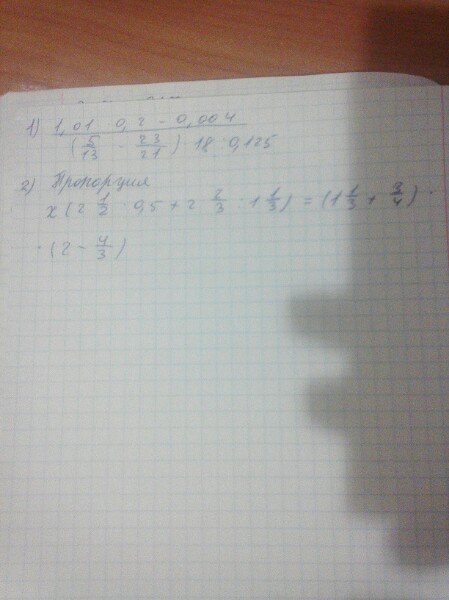 1) 1,01 · 0,2 - 0,004
(5/13 - 23/21) · 18 · 0,125
2) Пропорция
x (2 1/2 : 0,5 + 2 2/3 · 1 1/3) = (1 1/3 + 3/4) ·
· (2 - 4/3)